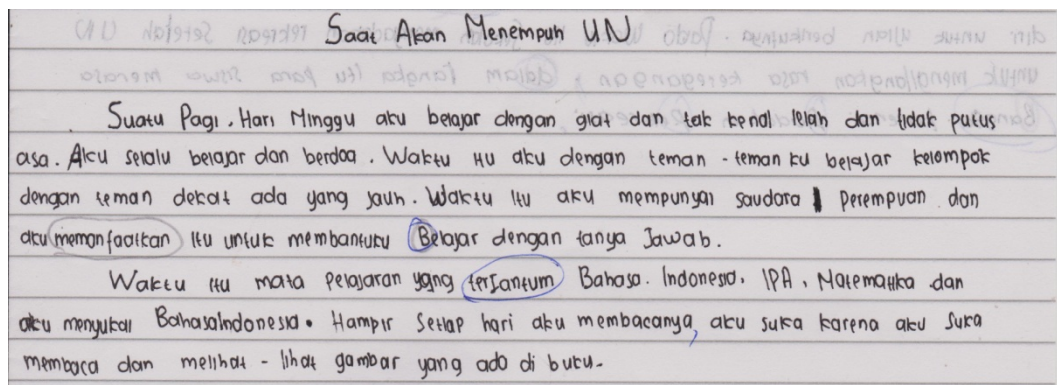 Saat Akan Menempuh UN
Suatu Pagi. Hari Minggu aku belajar dengan giat dan tak kenal lelah dan tidak putus
asa. Aku selalu belajar dan berdoa. Waktu itu aku dengan teman-teman ku belajar kelompok
dengan teman dekat ada yang jauh. Waktu itu aku mempunyai saudara perempuan dan
aku memanfaatkan itu untuk membantuku Belajar dengan tanya Jawab.
Waktu itu mata pelajaran yang terjantum Bahasa. Indonesia, IPA, Matematika dan
aku menyukai BahasaIndonesia. Hampir Setiap hari aku membacanya, aku suka karena aku suka
membaca dan melihat-lihat gambar yang ada di buku.